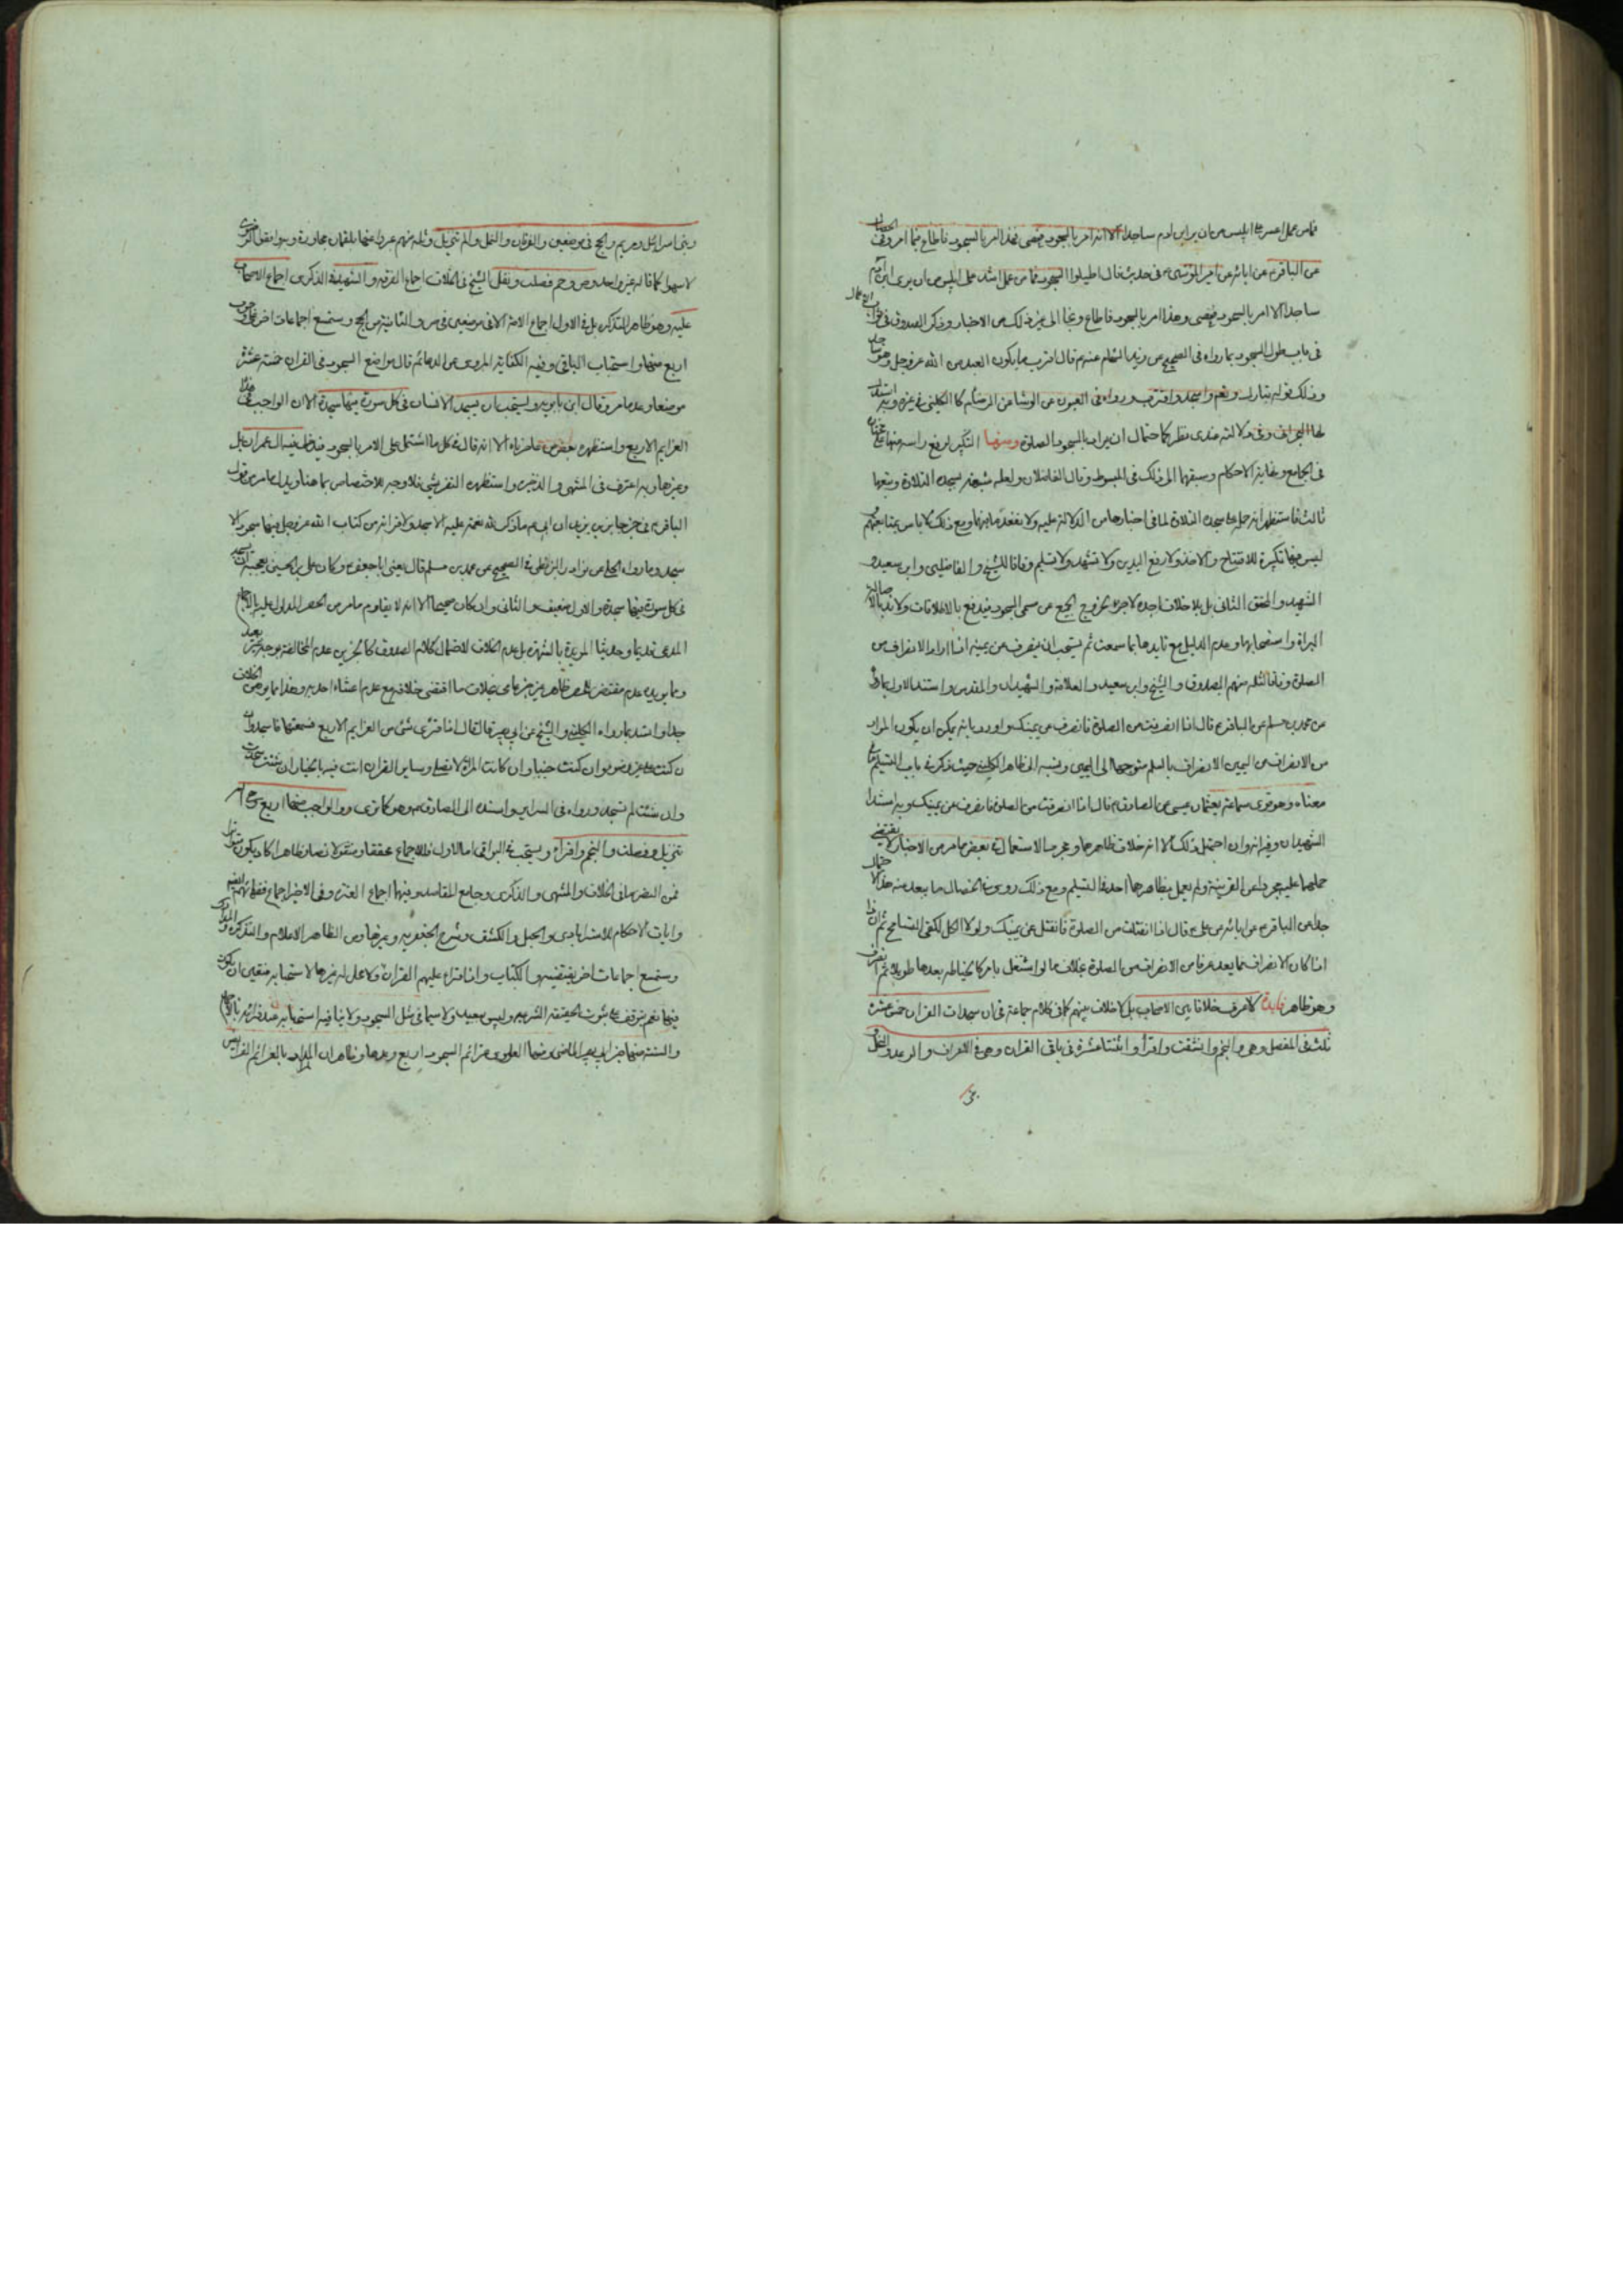 فما من عمل اعسر على ابليس من ان يرى ابن ادم ساجدا لانه امر بالسجود فعصى فهذا امر بالسجود فاطاع فيما امر وفى الخصال
عن الباقر ع عن ابائه عن امير المؤمنين ع فى حديث قال اطيلوا السجود فما من عمل اشد على ابليس من ان يرى ابن ادم
ساجدا لانه امر بالسجود فعصى وهذا امر بالسجود فاطاع ونجا الى غير ذلك من الاخبار وذكر الصدوق فى ثواب الاعمال
فى باب طول السجود بما رواه فى الصحيح عن زيد الشحام عنه ع قال اقرب ما يكون العبد من الله عز وجل وهو ساجد
وذلك قوله تبارك وتعالى واسجد واقترب ورواه فى العيون عن الوشا عن الرضا ع كما الكلينى فى غيره وبه استدل
لها البحرانى وفى دلالته عندى نظر كما احتمال ان يراد بالسجود الصلوة ومنها التكبير لرفع راسه منها
فى الجامع ونهاية الاحكام وسبقهما الى ذلك فى المبسوط وقال الفاضلان ولعله شبهه بسجدة التلاوة وتبعهما
ثالث فاستظهر انه حمله على سجدة التلاوة لما فى اخبارها من الدلالة عليه ولا بعد ومع ذلك لا باس بمتابعتهم
ليس فيها تكبيرة للافتتاح ولا اخذ ولا رفع اليدين ولا تشهد ولا تسليم وفاقا للشيخ والفاضلين وابن سعيد و
الشهيد والمحقق الثانى بل بلا خلاف اجده لا جزءا لخروج الجميع عن مسمى السجود فيدفع بالاطلاقات ولا ندبا لاصالة
البراءة واستصحابها وعدم الدليل مع تايدها بما سمعت ثم يستحب ان ينصرف عن يمينه اذا اراد الانصراف من
الصلوة وفاقا لثلة منهم الصدوق والشيخ وابن سعيد والعلامة والشهيدان والمقدس واستدل الاول بما رواه
عن محمد بن مسلم عن الباقر ع قال اذا انصرفت من الصلوة فانصرف عن يمينك واورد بانه يمكن ان يكون المراد
من الانصراف عن اليمين الانصراف بالسلام متوجها الى اليمين ونسبه الى ظاهر الكلينى حيث ذكره فى باب التسليم
معناه وهو قوى سماعة بعثمان بن عيسى عن الصادق ع قال اذا انصرفت من الصلوة فانصرف عن يمينك وبه استدل
الشهيدان وفيه انه وان احتمل ذلك الا انه خلاف ظاهرها ومجرد الاستعمال فى بعض ما مر من الاخبار لا يقتضى
حملها عليه مجردا عن القرينة ولم يعمل بظاهرها احد فى التسليم ومع ذلك روى فى الخصال ما يبعد منه هذا الاحتمال
جدا عن الباقر ع عن ابائه عن على ع قال اذا انفتلت من الصلوة فانفتل عن يمينك ولولا الكل لكفى التسامح ثم ان هذا
اذا كان الانصراف مما يعد عرفا من الانصراف من الصلوة بخلاف ما لو اشتغل بامر كالخياطة بعدها طويلا ثم انصرف
وهو ظاهر فايدة لا اعرف خلافا بين الاصحاب بل لا خلاف بينهم كما فى كلام جماعة فى ان سجدات القران خمس عشرة
ثلث فى المفصل وهى والنجم وانشقت واقرأ واثنتا عشرة فى باقى القران وهى فى الاعراف والرعد والنحل و
وبنى اسرائيل ومريم والحج فى موضعين والفرقان والنمل والم تنزيل وثلة منهم عبروا عنها بلقمان مجاورة
لا سهوا كما قاله غير واحد وص وحم فصلت ونقل الشيخ فى الخلاف اجماع الفرقة والشهيد فى الذكرى اجماع الاصحاب
عليه وهو ظاهر التذكرة بل فى الاول اجماع الامة الا فى موضعين فى ص والثانية من الحج وستسمع اجماعات اخر على وجوب
اربع منها واستحباب الباقى وفيه الكفاية المروى عن الدعائم قال مواضع السجود فى القران خمسة عشر
موضعا وعد ما مر وقال ابن بابويه ويستحب ان يسجد الانسان فى كل سورة فيها سجدة الا ان الواجب فى هذه
العزايم الاربع واستظهره بعض من عاصرناه الا انه قال فى كل ما اشتمل على الامر بالسجود فيدخل فيه ال عمران بل
وغيرها وبه اعترف فى المنتهى والذخيرة واستظهره التفريشى فلا وجه للاختصاص بما هنا ويدل عامر من قول
الباقر ع فى خبر جابر بن يزيد ان ابى ع ما ذكر لله نعمة عليه الا سجد ولا قرا اية من كتاب الله عز وجل فيها سجود الا
سجد وما رواه الحلى عن نوادر البزنطى فى الصحيح عن محمد بن مسلم قال يعنى ابا جعفر ع وكان على بن الحسين يعجبه ان يسجد
فى كل سورة فيها سجدة والاول ضعيف والثانى وان كان صحيحا الا انه لا يقاوم ما مر من الحصر المدلول عليه بالاجماع
المدعى قديما وحديثا المؤيدة بالشهرة بل عدم الخلاف لاحتمال كلام الصدوق كالخبرين عدم المخالفة بوجه غير بعيد
ومما يؤيده عدم مقتضى الحصر ظاهر غير خبر عامى بخلاف ما اقتضى خلافه مع عدم اعتناء احد به وهذا مما يوهن الخلاف
جدا واستدل بما رواه الكلينى والشيخ عن ابى بصير قال قال اذا قرئ شئ من العزايم الاربع فسمعتها فاسجد وان
ن كنت على غير وضوء وان كنت جنبا وان كانت المراة لا تصلى وساير القران انت فيه بالخيار ان شئت سجدت
وان شئت لم تسجد ورواه فى السراير واسنده الى الصادق ع وهو كما ترى والواجب منها اربع وهى الم
تنزيل وفصلت والنجم واقرأ ويستحب فى البواقى اما الاول فللاجماع محققا ومنقولا نصا وظاهرا كاد يكون متواترا
فمن النص ما فى الخلاف والمنتهى والذكرى وجامع المقاصد وفيها اجماع العترة وفى الاخير اجماع فقهائهم
وايات الاحكام للاستربادى والحبل والكشف وشرح الجعفرية وغيرها ومن الظاهر الاعلام والتذكرة والمدارك
وستسمع اجماعات اخر يقتضيه والكتاب واذا قرئ عليهم القران ولا محل له غيرها لاستحبابه فتعين ان يكون
فيها نعم يتوقف على ثبوت الحقيقة الشرعية وليس ببعيد ولا سيما فى مثل السجود ولا ينافيه استحبابه عند قرائة
والسنة منها خبر ابى بصير الماضى ومنها العلوى عزائم السجود اربع وعدها وظاهر ان المراد بالعزائم الفرايض